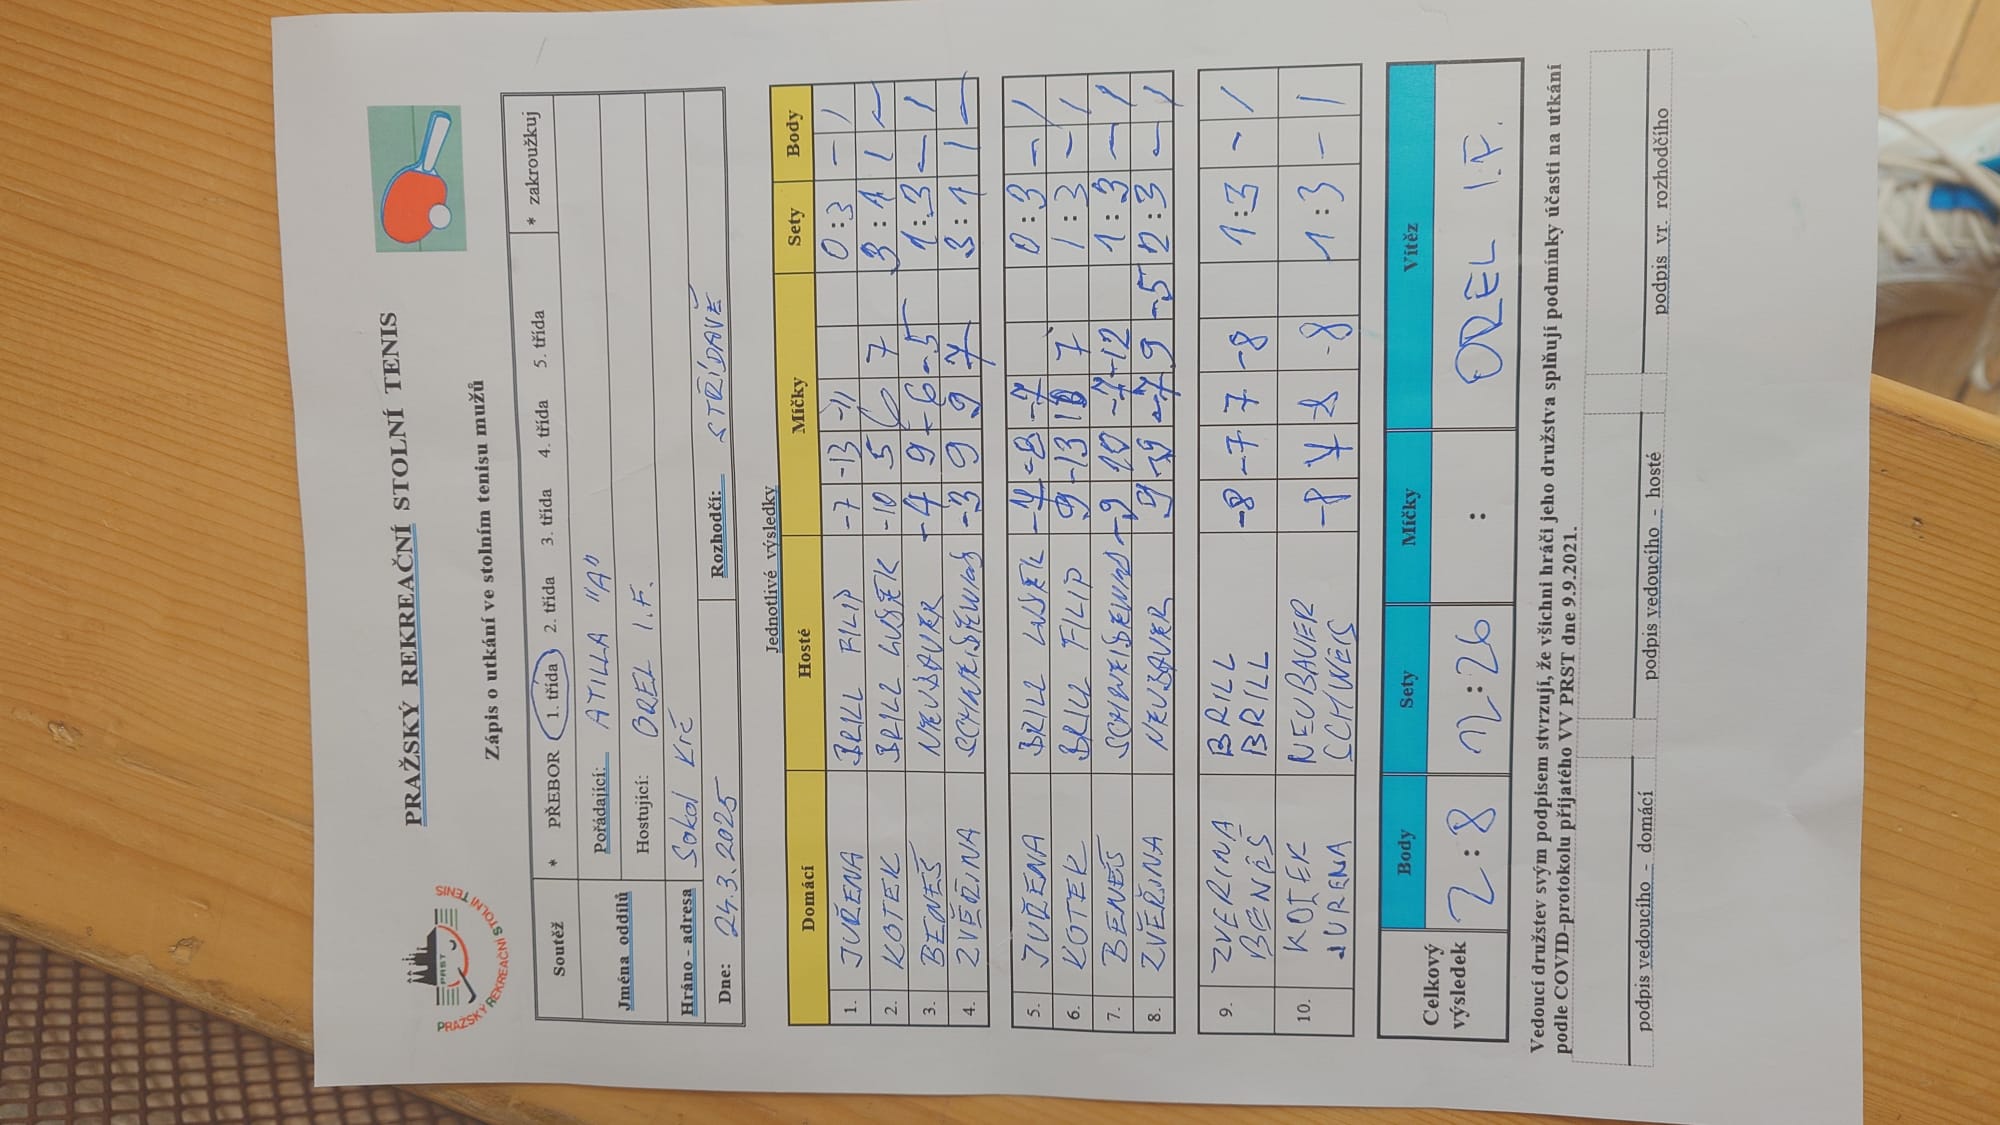 PRAŽSKÝ REKREAČNÍ STOLNÍ TENIS
PRST
PRAŽSKÝ REKREAČNÍ STOLNÍ TENIS
Zápis o utkání ve stolním tenisu mužů
Soutěž * PŘEBOR 1. třída 2. třída 3. třída 4. třída 5. třída * zakroužkuj
Jména oddílů Pořádající: ATILLA "A"
Hostující: OREL I.F.
Hráno - adresa Sokol Krč
Dne: 24.3.2025 Rozhodčí: STŘÍDAVĚ
Jednotlivé výsledky
Domácí Hosté Míčky Sety Body
1. JUŘENA BRILL FILIP -7 -13 -11 0:3 - 1
2. KOTEK BRILL LUDĚK -10 5 6 7 3:1 1 -
3. BENEŠ NEUBAUER -4 9 -6 -5 1:3 - 1
4. ZVĚŘINA -3 9 9 7 3:1 1 -
5. JUŘENA BRILL LUDĚK -8 -7 0:3 - 1
6. KOTEK BRILL FILIP 9 -13 7 1:3 - 1
7. BENEŠ -9 10 -7 -12 1:3 - 1
8. ZVĚŘINA NEUBAUER 9 -7 9 -5 2:3 - 1
9. ZVERINA BRILL -8 -7 7 -8 1:3 - 1
BENEŠ BRILL
10. KOTEK NEUBAUER -8 -8 1:3 - 1
JURENA SCHWEIS
Celkový výsledek Body Sety Míčky Vítěz
2:8 12:26 : OREL I.F.
Vedoucí družstev svým podpisem stvrzují, že všichni hráči jeho družstva splňují podmínky účasti na utkání
podle COVID-protokolu přijatého VV PRST dne 9.9.2021.
podpis vedoucího - domácí podpis vedoucího - hosté podpis vr. rozhodčího